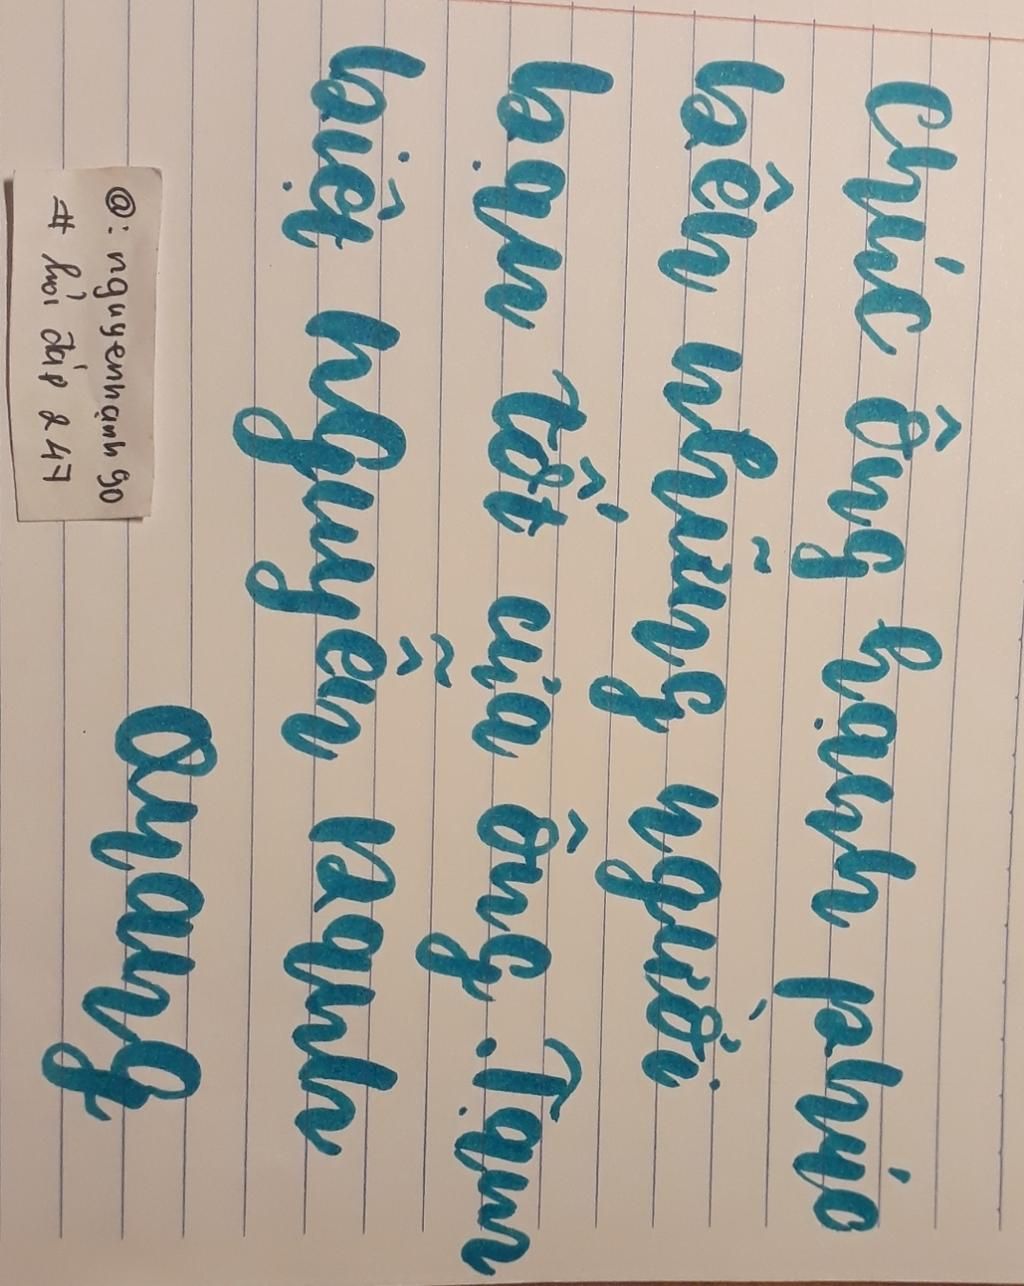 Chúc ông hạnh phúc
bên những người
bạn tốt của ông. Tạm
biệt Nguyễn Danh
Quang
@: nguyenhạnh90
# hỏi đáp 247